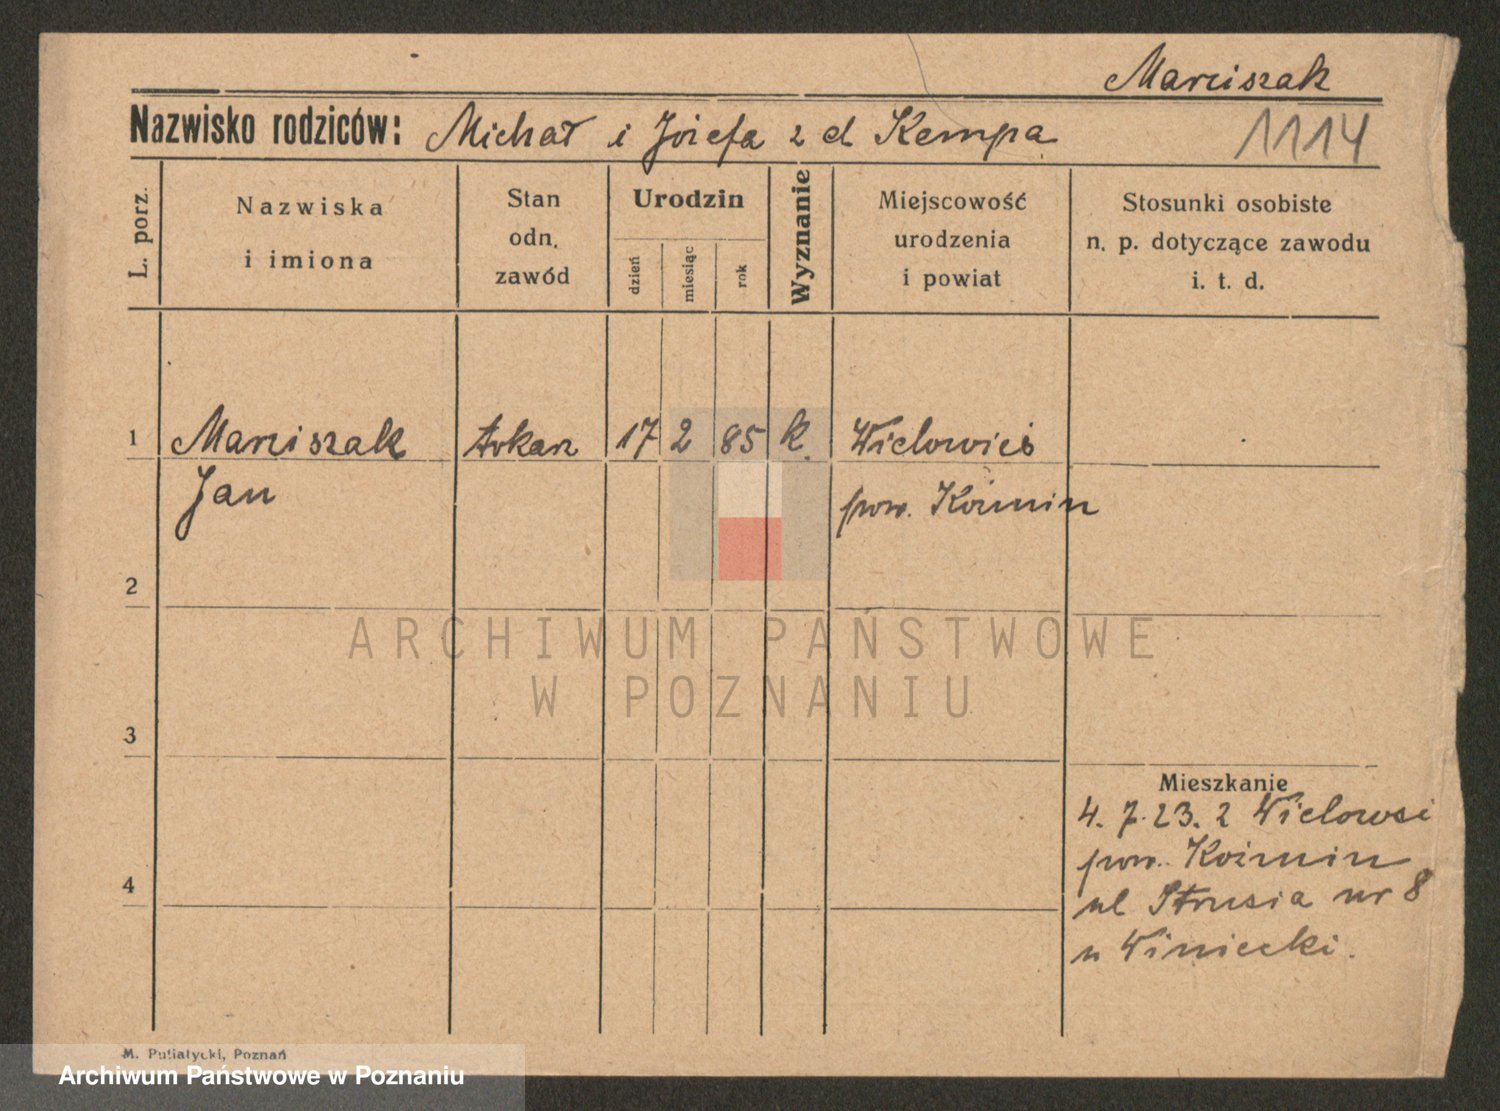 Marciszak
Nazwisko rodziców: Michał i Józefa z d Kempa
1114
L. porz.
Nazwiska
i imiona
Stan
odn.
zawód
Urodzin
dzień
miesiąc
rok
Wyznanie
Miejscowość
urodzenia
i powiat
Stosunki osobiste
n. p. dotyczące zawodu
i. t. d.
1 Marciszak tokarz 17 2 85 k. Wielowieś
Jan pow. Koźmin
2
ARCHIWUM PAŃSTWOWE
W POZNANIU
3
Mieszkanie
4. 7. 23. z Wielowsi
pow. Koźmin
4
ul Strusia nr 8
u Winiecki.
M. Putiatycki, Poznań
Archiwum Państwowe w Poznaniu